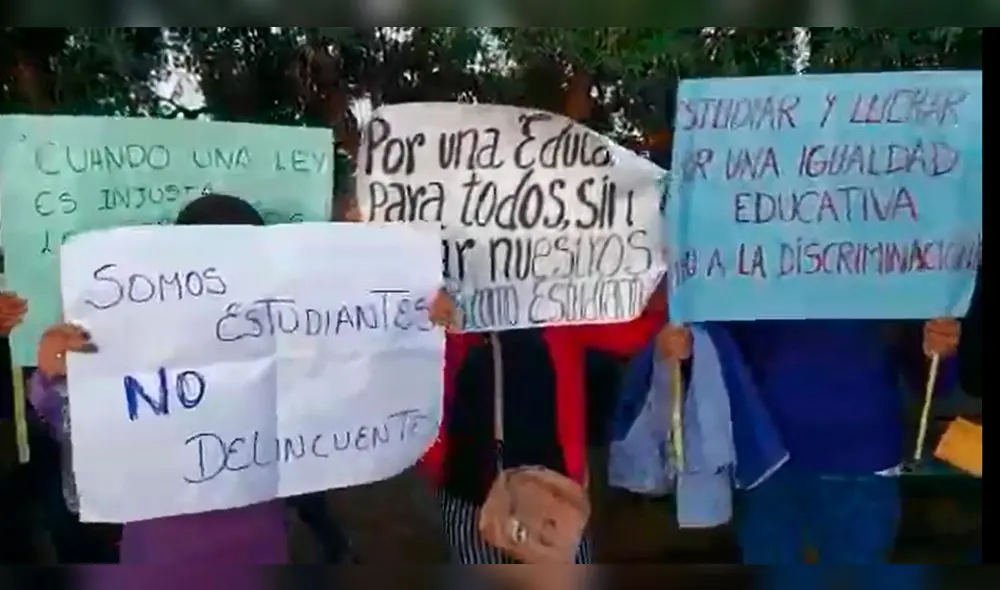 CUANDO UNA LEY
ES INJUSTA
SOMOS
ESTUDIANTES
NO
DELINCUENTE
Por una Educa
para todos, sin
ar nuestros
como Estudiante
STUDIAR Y LUCHAR
OR UNA IGUALDAD
EDUCATIVA
NO A LA DISCRIMINACION